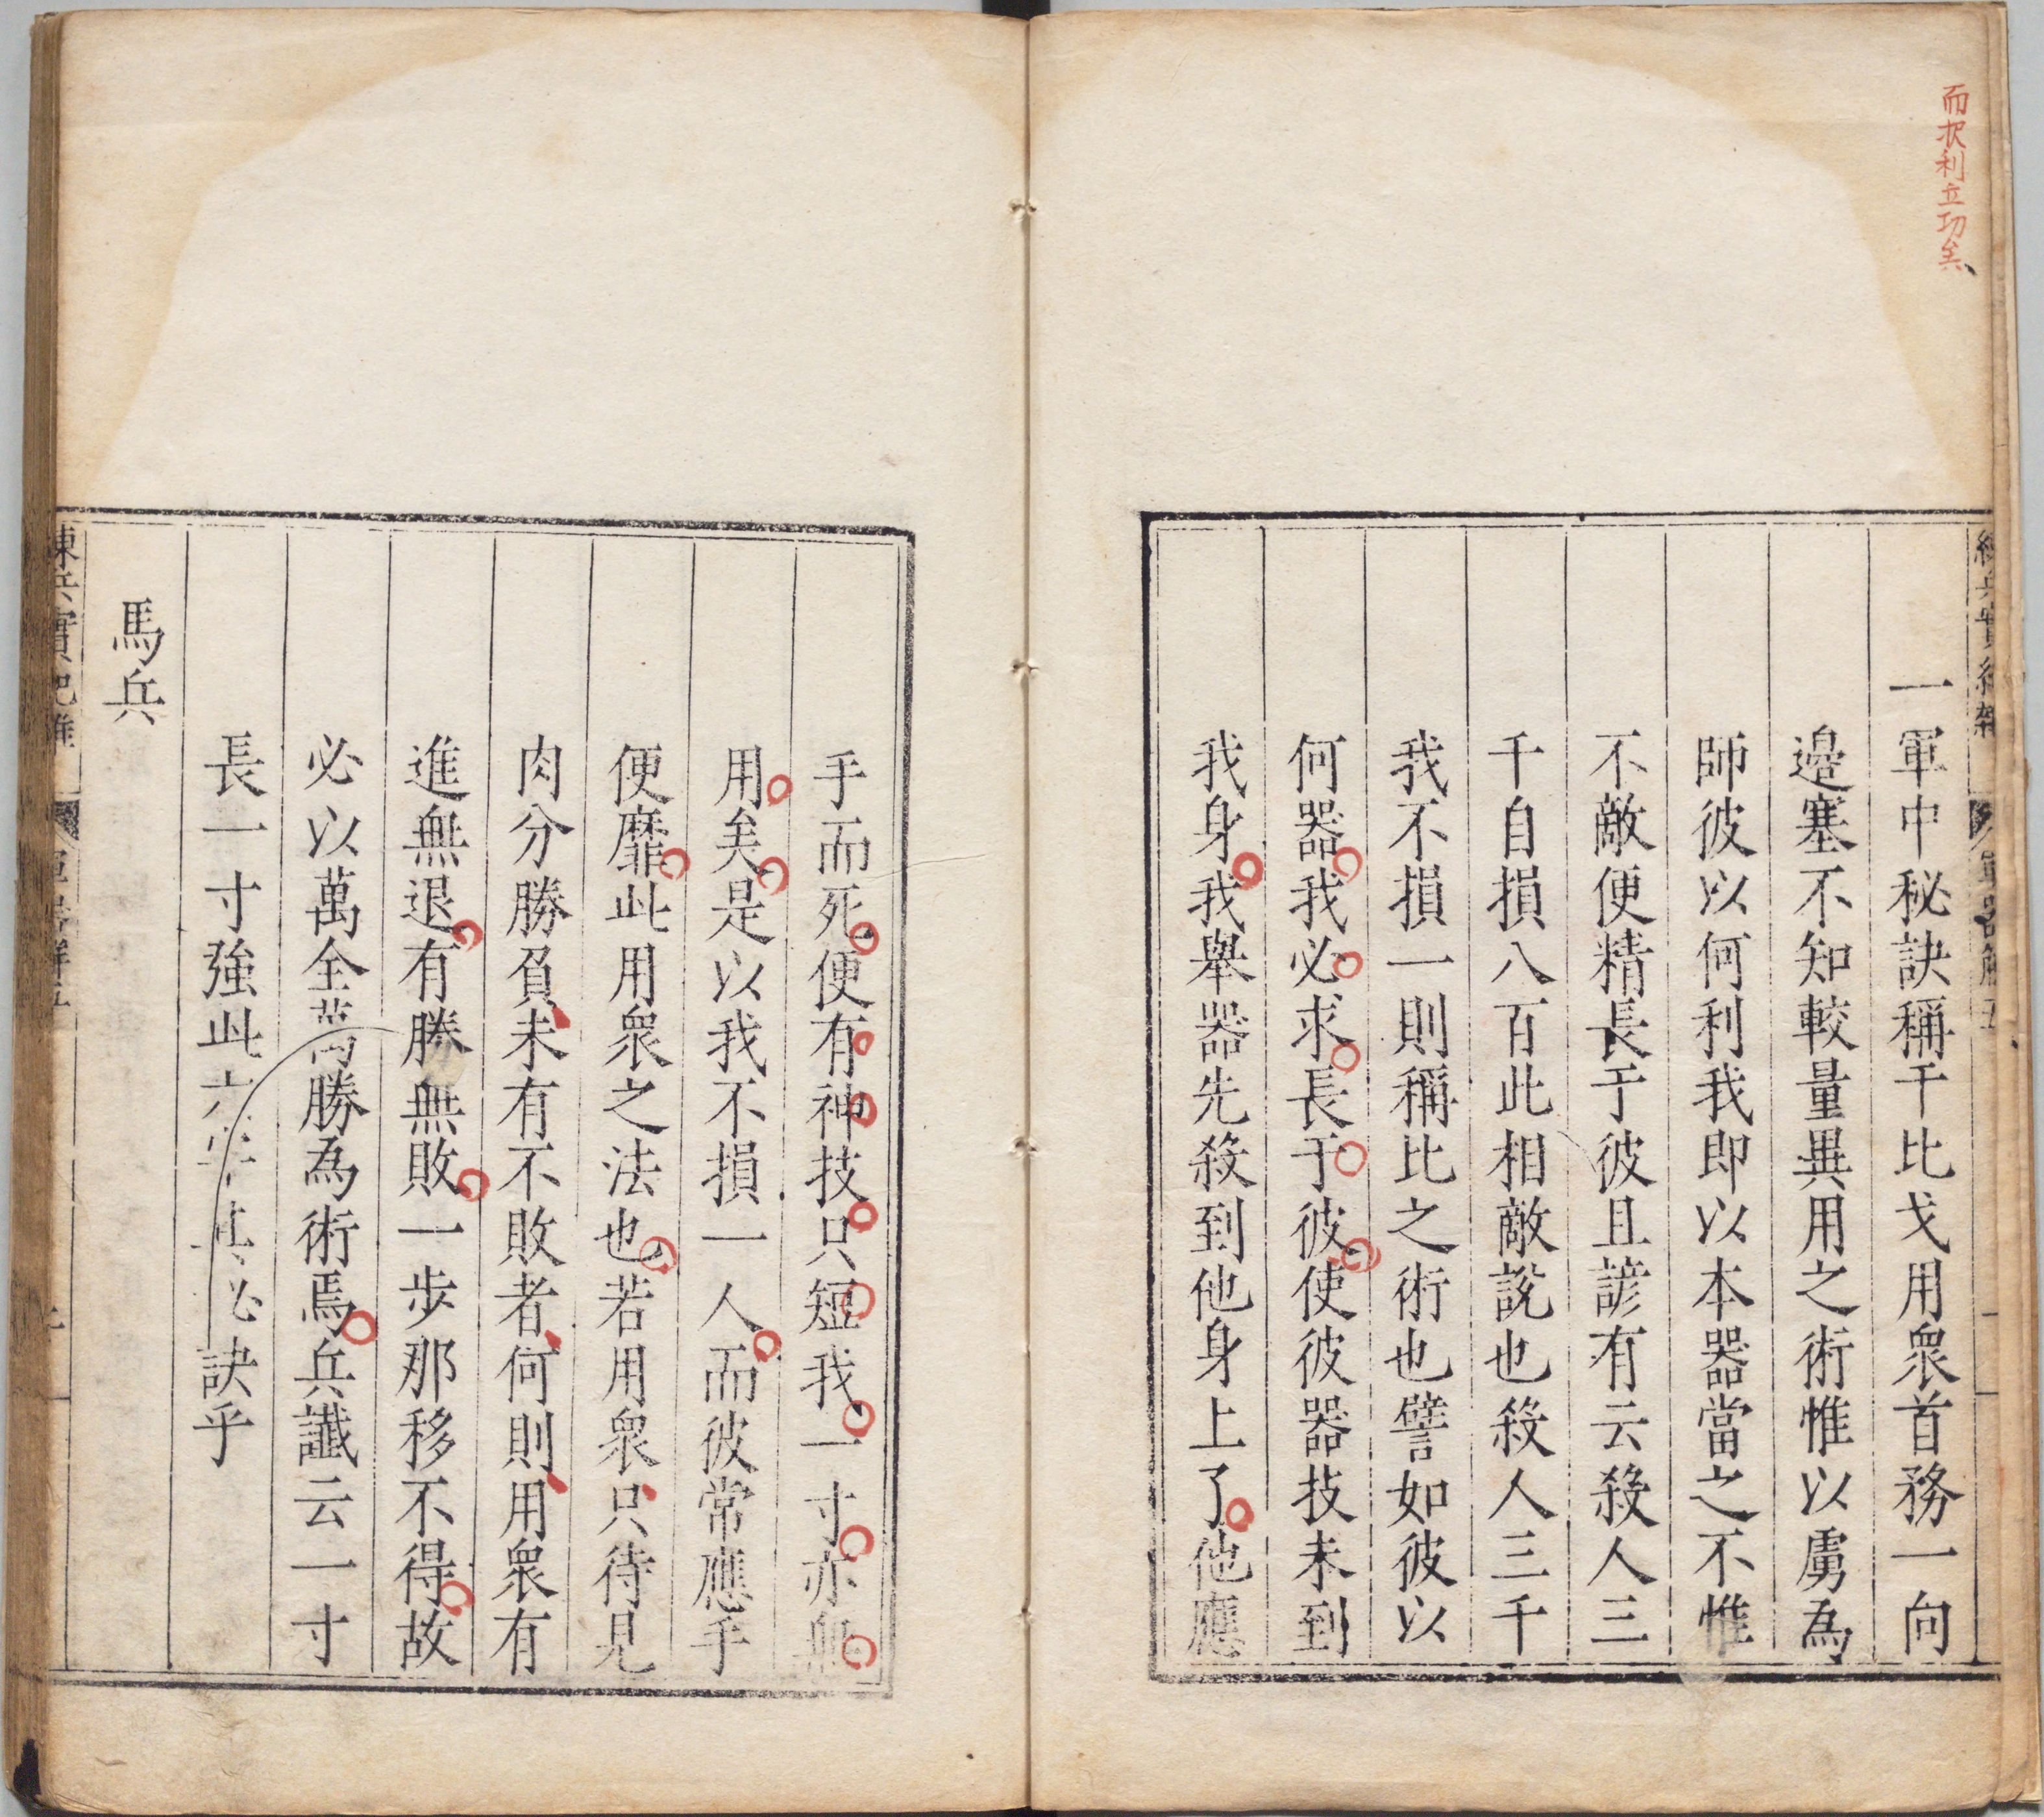 而 利立功矣
一軍中秘訣稱干比戈用眾首務一向
邊塞不知較量異用之術惟以虜為
師彼以何利我即以本器當之不惟
不敵便精長于彼且諺有云殺人三
千自損八百此相敵說也殺人三千
我不損一則稱比之術也譬如彼以
何器我必求長于彼使彼器技未到
我身我舉器先殺到他身上了他應
手而死便有神技只短我一寸亦無
用矣是以我不損一人而彼常應手
便靡此用眾之法也若用眾只待見
肉分勝負未有不敗者何則用眾有
進無退有勝無敗一步那移不得故
必以萬全萬勝為術焉兵讖云一寸
長一寸強此六字其必訣乎
馬兵
練兵實紀雜